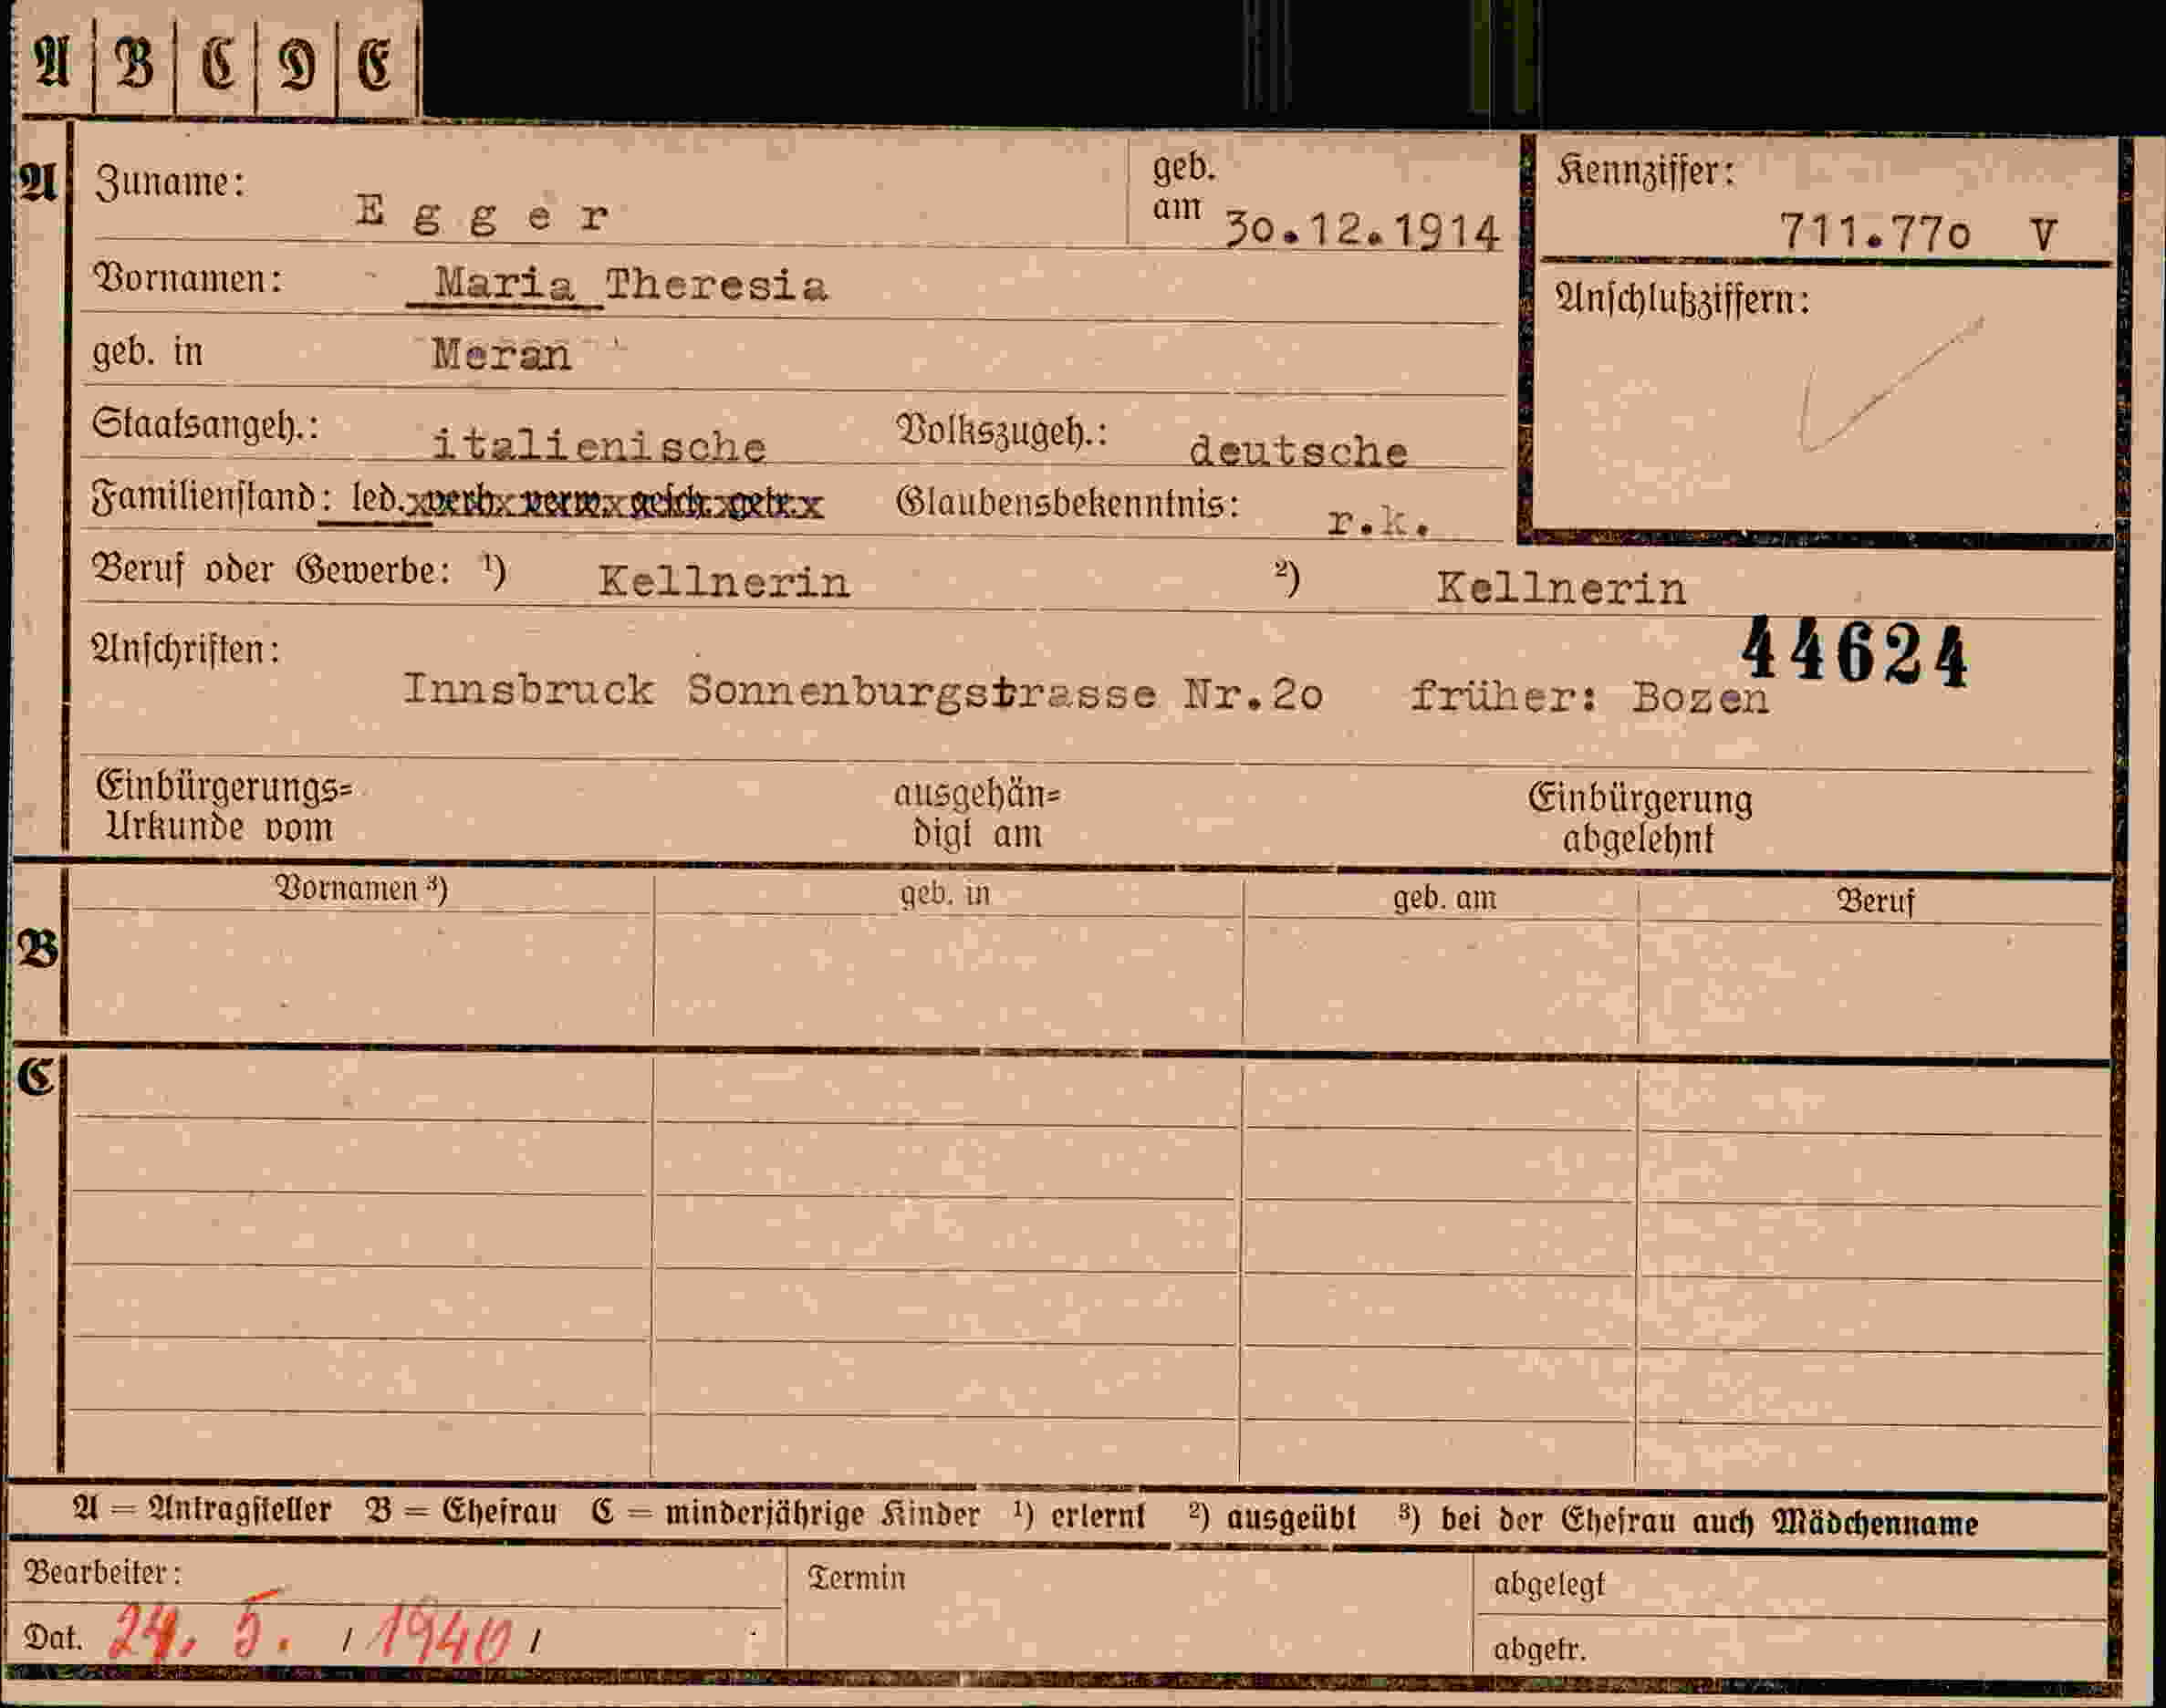 A B C D E
A Zuname: Egger geb. am 30.12.1914 Kennziffer: 711.770 V
Vornamen: Maria Theresia Anschlußziffern:
geb. in Meran
Staatsangeh.: italienische Volkszugeh.: deutsche
Familienstand: led. verh. verw. gesch. getr. Glaubensbekenntnis: r.k.
Beruf oder Gewerbe: ¹) Kellnerin ²) Kellnerin
44624
Anschriften: Innsbruck Sonnenburgstrasse Nr.20 früher: Bozen
Einbürgerungs= ausgehän= Einbürgerung
Urkunde vom digt am abgelehnt
Vornamen ³) geb. in geb. am Beruf
B
C
A = Antragsteller B = Ehefrau C = minderjährige Kinder ¹) erlernt ²) ausgeübt ³) bei der Ehefrau auch Mädchenname
Bearbeiter: Termin abgelegt
Dat. 24. 5. / 1940 / abgetr.